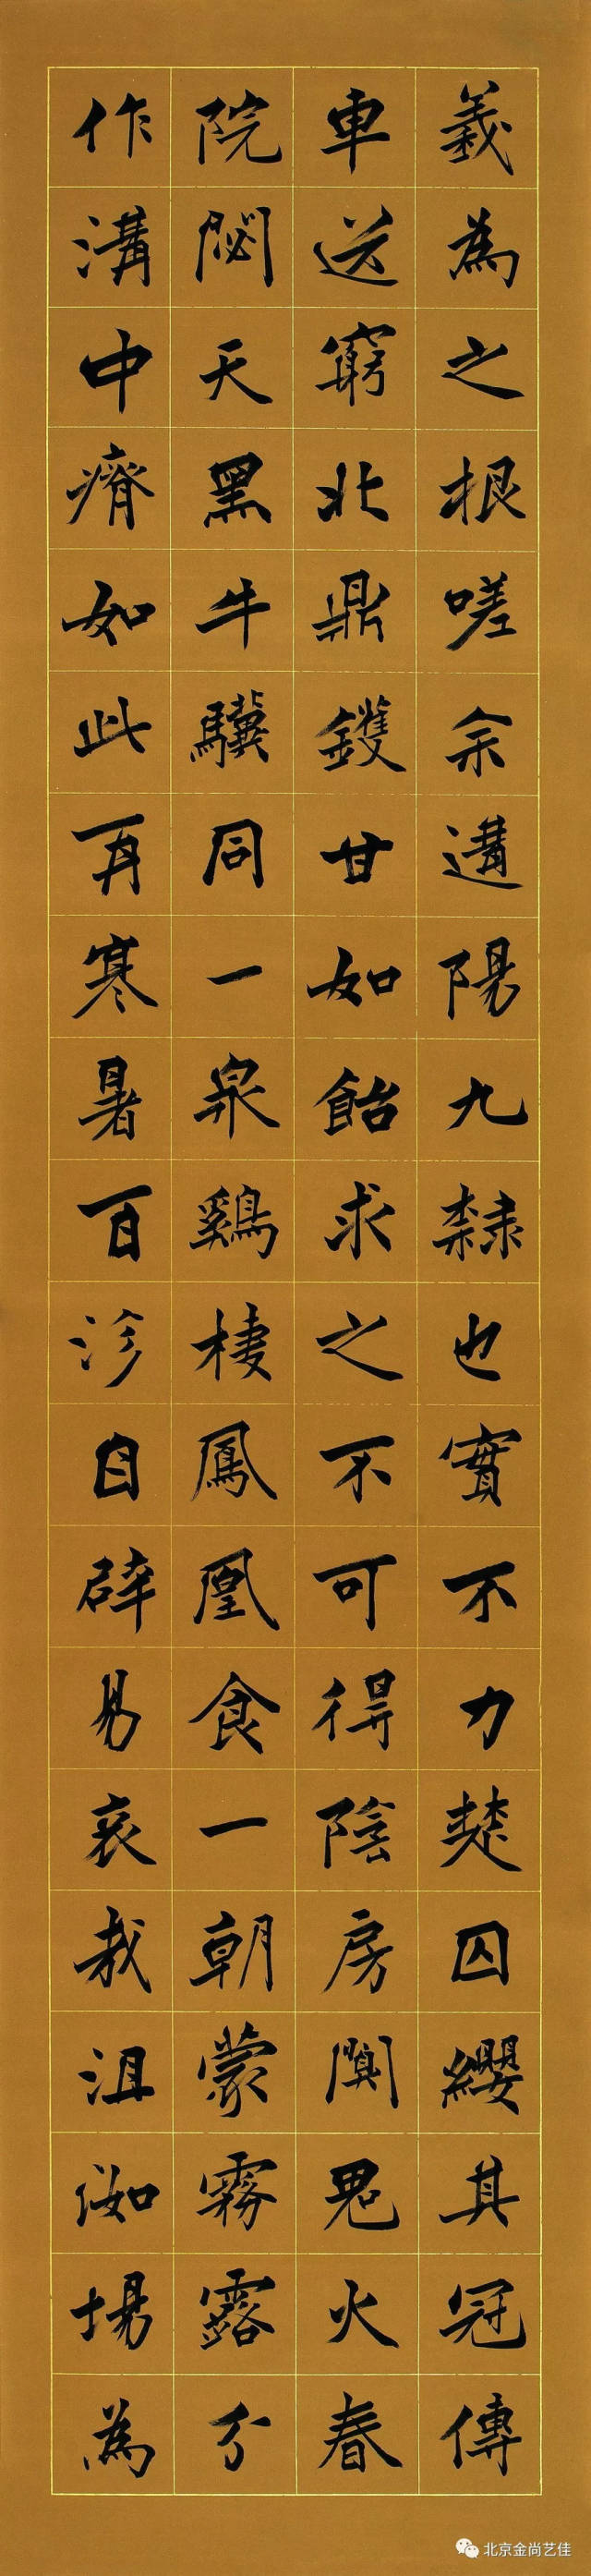 義為之根嗟余遘陽九隸也實不力楚囚纓其冠傳
車送窮北鼎鑊甘如飴求之不可得陰房闃鬼火春
院閟天黑牛驥同一皂鷄棲鳳凰食一朝蒙霧露分
作溝中瘠如此再寒暑百沴自辟易哀哉沮洳場為
北京金尚艺佳